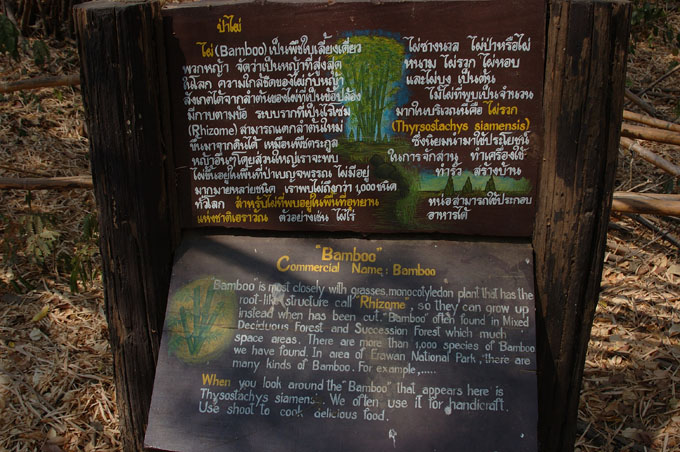 ป่าไผ่
ไผ่ (Bamboo) เป็นพืชใบเลี้ยงเดี่ยว
พวกหญ้า จัดว่าเป็นหญ้าที่สูงที่สุด
ในโลก ความใกล้ชิดของไผ่กับหญ้า
สังเกตได้จากลำต้นของไผ่ที่เป็นข้อปล้อง
มีกาบตามข้อ ระบบรากที่เป็นไรโซม
(Rhizome) สามารถแตกลำต้นใหม่
ขึ้นมาจากดินได้ เหมือนพืชตระกูล
หญ้าอื่นๆ โดยส่วนใหญ่เราจะพบ
ไผ่ขึ้นอยู่ในพื้นที่ป่าเบญจพรรณ ไผ่มีอยู่
มากมายหลายชนิด เราพบไผ่ถึงกว่า 1,000 ชนิด
ทั่วโลก สำหรับไผ่ที่พบอยู่ในพื้นที่อุทยาน
แห่งชาติเอราวัณ ตัวอย่างเช่น ไผ่ไร่
ไผ่ซางนวล ไผ่ป่าหรือไผ่
หนาม ไผ่รวก ไผ่หอบ
และไผ่บง เป็นต้น
ไม้ไผ่ที่พบเป็นจำนวน
มากในบริเวณนี้คือ ไผ่รวก
(Thyrsostachys siamensis)
ซึ่งนิยมนำมาใช้ประโยชน์
ในการจักสาน ทำเครื่องใช้
ทำรั้ว สร้างบ้าน
หน่อสามารถใช้ประกอบ
อาหารได้
"Bamboo"
Commercial Name: Bamboo
Bamboo" is most closely with grasses, monocotyledon plant that has the
root-like structure call " Rhizome, so they can grow up
instead when has been cut. "Bamboo" often found in Mixed
Deciduous Forest and Succession Forest which much
space areas. There are more than 1,000 species of Bamboo
we have found. In area of Erawan National Park, there are
many kinds of Bamboo. For example,.....
When you look around the "Bamboo" that appears here is
Thysostachys siamens... We often use it for handicraft.
Use shoot to cook delicious food.